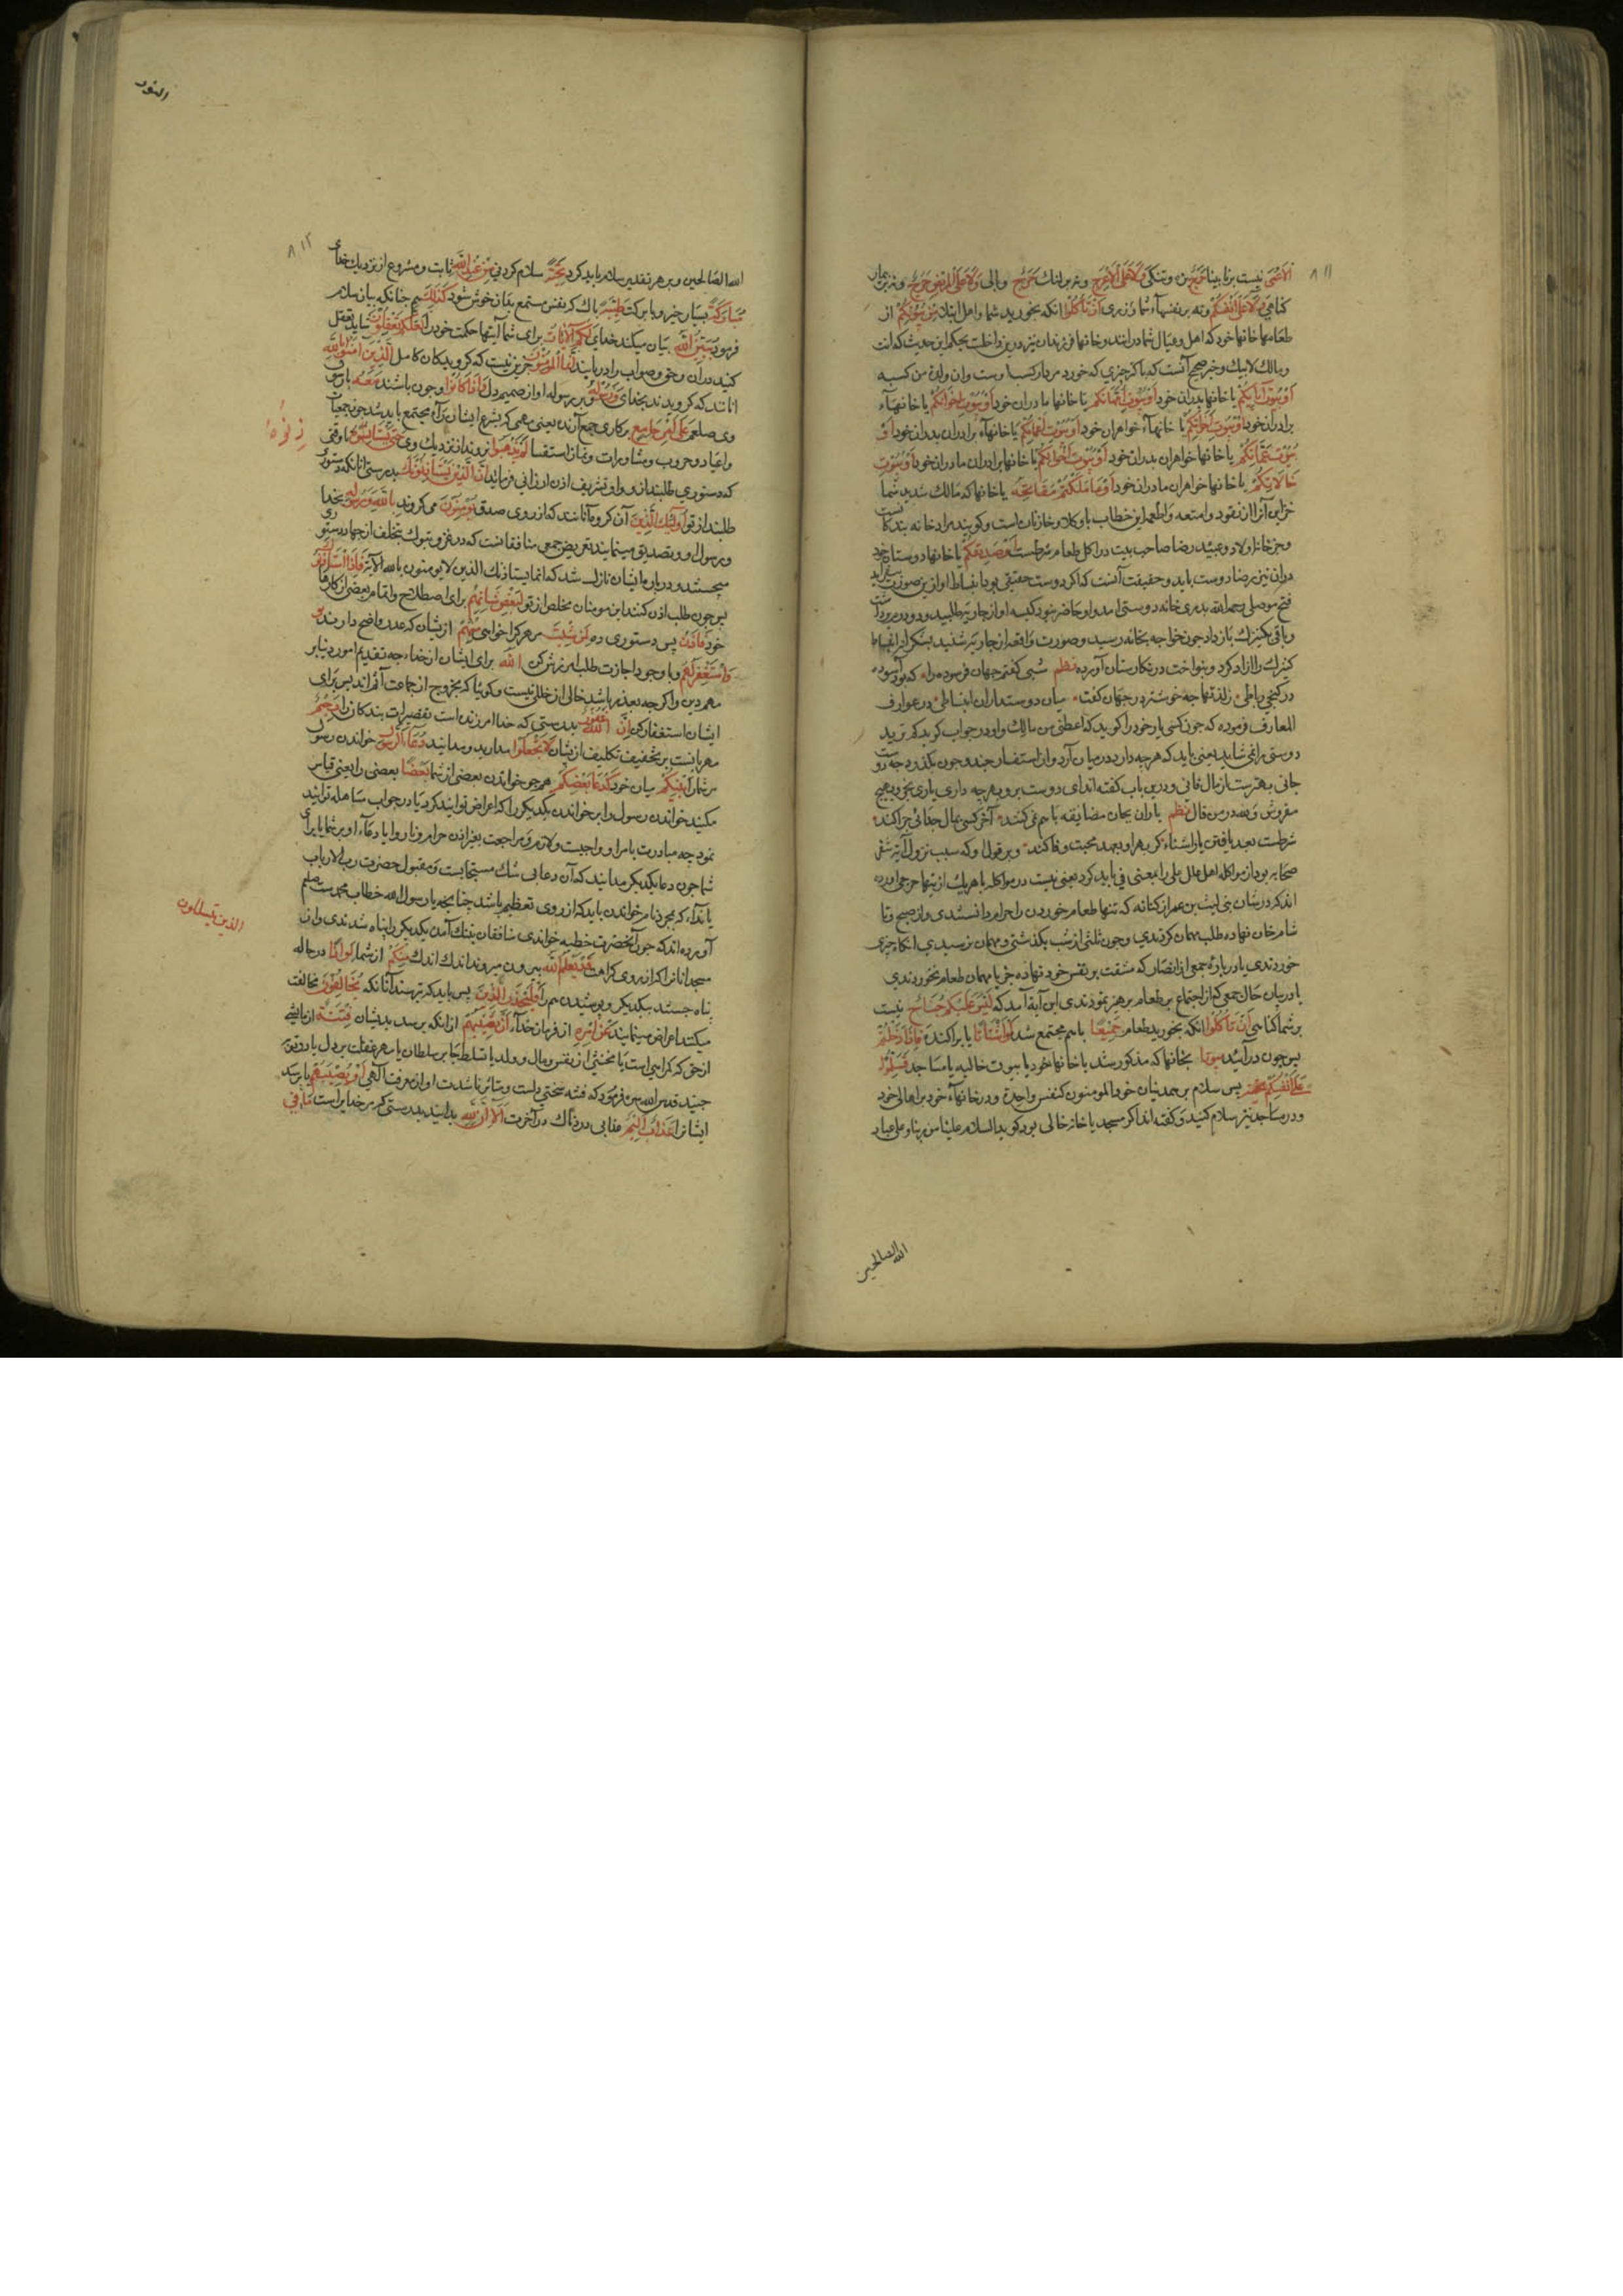 ٨١١
الاعمی نیست بر نابینا حرج وتنگی ولا علی الاعرج ونه بر لنگ حرج وبالی ولا علی المریض حرج ونه بر بیمار
کناهی ولا علی انفسکم ونه بر نفسهاء شما ان تاکلوا انکه بخورید شما واهل من بیوتکم از
طعامها خانها خود که اهل وعیال شما درانند وخانها فرزندان نیز درین داخلست بحکم این حدیث که انت
ومالک لابیک وخبر صحیح آنست که پاکیزه چیزی که خورد مرد از کسب اوست وان ولده من کسبه
او بیوت آبائکم یا خانها پدران خود او بیوت امهاتکم یا خانها مادران خود او بیوت اخوانکم یا خانهاء
برادران خود او بیوت اخواتکم یا خانهاء خواهران خود او بیوت اعمامکم یا خانهاء برادران پدران خود او
بیوت عماتکم یا خانها خواهران پدران خود او بیوت اخوالکم یا خانها برادران مادران خود او بیوت
خالاتکم یا خانها خواهران مادران خود او ما ملکتم مفاتحه یا خانها که مالک شدید شما
خزاین آنرا از نقود وامتعه واطعمه این خطاب با وکلا وخازنان است وکویند مراد خانه بندکا نست
وجز خانه اولاد وعبید رضا صاحب بیت در اکل طعام شرطست او صدیقکم یا خانها دوستان خود
دران نیز رضا دوست باید وحقیقت آنست که اکر دوست حقیقی بود انبساط او ازین صورت
فتح موصلی رحمه الله بدر خانه دوستی امد واو حاضر نبود کیسه او از جاریه طلبید ودو درم برداشت
وباقی بکنیزک باز داد چون خواجه بخانه رسید وصورت واقعه از جاریه شنید بشکرانه انبساط
کنیزک را ازاد کرد وبنواخت در نکارستان آورده نظم شبی کفتم جهان فرسوده را که بود آسوده
در کنجی رباطی زلذتها چه خوشتر در جهان کفت میان دوستداران انبساطی در عوارف
المعارف فرموده که چون کسی یار خود را کوید که اعطنی من مالک واو در جواب کوید کم ترید
دوستی را نمی شاید یعنی باید که هرچه دارد درمیان آرد وان استفسار چند وچون بکذرد چه دوست
جانی بهترست از مال فانی ودرین باب کفته اند ای دوست برو بهرچه داری یاری بخر وبهیچ
مفروش نظم یاران بجان مضایقه با هم نمی کنند آخر کسی بمال جدائی چرا کند
صحابه بود از مواکله اهل علل علی را بمعنی فی باید کرد یعنی نیست در مواکله با هریک ازینها حرجی آورده
اند که در شان بنی لیث بن عمر از کنانه که تنها طعام خوردن را حرام دانستندی واز صبح تا
شام خوان نهاده طلب مهمان کردندی وچون ثلثی از شب بکذشتی ومهمان نرسیدی انکاه چیزی
خوردندی یا درباره جمعی از انصار که مشقت بر نفس خود نهاده جز با مهمان طعام نخوردندی
یا در بیان حال جمعی که از اجتماع بر طعام پرهیز نمودندی این آیه آمد که لیس علیکم جناح نیست
بر شما کناهی ان تاکلوا انکه بخورید طعام جمیعا باهم مجتمع شده او اشتاتا یا پراکنده فاذا دخلتم
پس چون درآئید بیوتا بخانها که مذکور شد یا خانها خود یا بیوت خالیه یا مساجد فسلموا
علی انفسکم پس سلام بر همدینان خود المومنون کنفس واحدة ودر خانهاء خود بر اهالی خود
ودر مساجد نیز سلام کنید وکفته اند اکر مسجد یا خانه خالی بود کوید السلام علینا من ربنا وعلی عباد
الله الصالحین
النور
٨١٢
الله الصالحین وبر هر تقدیر سلام باید کرد تحیة سلام کردنی من عند الله ثابت ومشروع از نزدیک خدای
مبارکة بسیار خیر وبا برکت طیبة پاک که نفس مستمع بدان خوش شود کذلک همچنانکه بیان سلام
فرمود یبین الله بیان میکند خدای لکم الآیات برای شما آیتها حکمت خود را لعلکم تعقلون شاید تعقل
کنید دران وحق وصواب را دریابید انما المؤمنون جزین نیست که کرویدکان کامل الذین آمنوا بالله
آنانند که کرویدند بخدای ورسوله وبرسول او از صمیم دل واذا کانوا وچون باشند معه با رسول
وی صلعم علی امر جامع برکاری جمع آرنده یعنی مهمی که بشرع ایشان را مجتمع باید شد چون جمعات
واعیاد وحروب ومشاورات ونماز استسقا لم یذهبوا نروند از نزدیک وی حتی یستاذنوه تا وقتی
که دستوری طلبند از وی واو تشریف اذن ارزانی فرماید ان الذین یستاذنونک بدرستی آنانکه دستوری
طلبند از تو اولئک الذین آن کروه آنانند که از روی صدق یؤمنون می کروند بالله ورسوله بخدا
ورسول او وبتصدیق مینمایند تعریض جمعی منافقانست که در غزوه تبوک بتخلف از جهاد دستوری
میجستند ودرباره ایشان نازل شد که انما یستاذنک الذین لا یومنون بالله الآیه فاذا استاذنوک
پس چون طلب اذن کنند این مومنان مخلص از تو لبعض شانهم برای اصطلاح واتمام بعضی از کارها
خود فاذن پس دستوری ده لمن شئت مر هر کرا خواهی منهم ازیشان که عذر واضح دارند
واستغفر لهم وبا وجود اجازت طلب امرزش کن الله برای ایشان از خداء چه تقدیم امور دنیا بر
مهم دین واکرچه بعذر باشد خالی از خللی نیست
ایشان استغفار کن ان الله غفور بدرستی که خدا امرزنده است تقصیرات بندکان را رحیم
مهربانست بر تخفیف تکلیف ازیشان لا تجعلوا مدارید ومدانید دعاء الرسول خواندن رسول
مر شما را بینکم میان خود کدعاء بعضکم همچو خواندن بعضی از شما بعضا بعضی را یعنی قیاس
مکنید خواندن رسول را بر خواندن یکدیکر را که اعراض توانید کرد یا در جواب مساهله توانید
نمود چه مبادرت بامر او واجبست ولازم ومراجعت بغیر اذن حرام وناروا یا دعاء او بر شما یا برای
شما چون دعا یکدیکر مدانید که آن دعا بی شک مستجابست ومقبول حضرت رب الارباب
یا نداء که بمجرد نام خواندن باید که از روی تعظیم باشد چنانچه یا رسول الله خطاب محمدست صلعم
آورده اند که چون آنحضرت خطبه خواندی منافقان بتنک آمدن یکدیکر را پناه شدندی وازن
مسجد از روی کراهت قد یعلم الله بیرون میروند اندک اندک منکم از شما لواذا درحاله
پناه جستند بیکدیکر وپوشیدن هم را فلیحذر الذین پس باید که بترسند آنانکه یخالفون مخالفت
میکنند واعراض مینمایند عن امره از فرمان خداء ان تصیبهم ازانکه برسد بدیشان فتنة ازمایشی
جنید قدس الله سره فرمود که فتنه سختی دلست ومتاثر ناشدن او از معرفت آلهی او یصیبهم یا برسد
ایشانرا عذاب الیم عذابی دردناک در آخرت الا ان لله بدانید بدرستی که مر خدایراست ما فی
الذین یتسللون